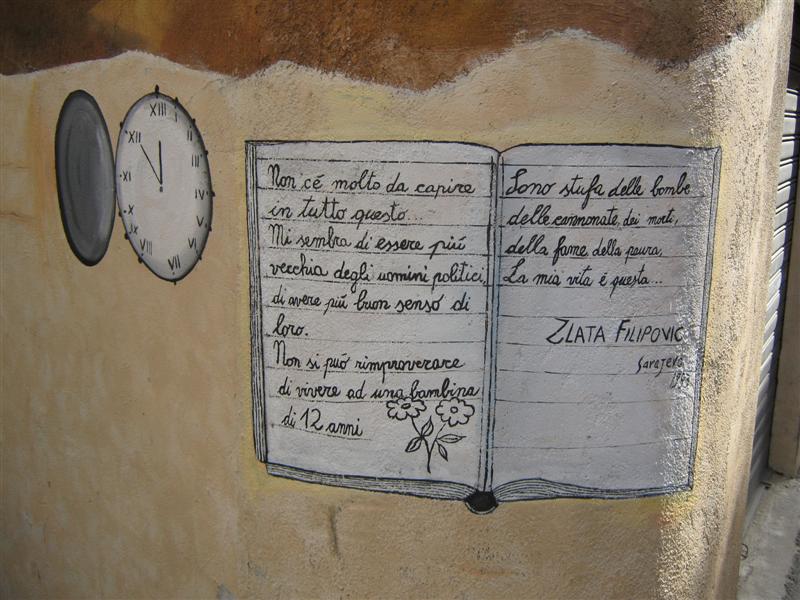 XIII
I
II
III
IV
V
VI
VII
VIII
IX
X
XI
XII
Non c'é molto da capire
in tutto questo...
Mi sembra di essere piú
vecchia degli uomini politici,
di avere piú buon senso di
loro.
Non si puó rimproverare
di vivere ad una bambina
di 12 anni
Sono stufa delle bombe
delle cannonate, dei morti,
della fame della paura.
La mia vita é questa...
ZLATA FILIPOVIC
Sarajevo